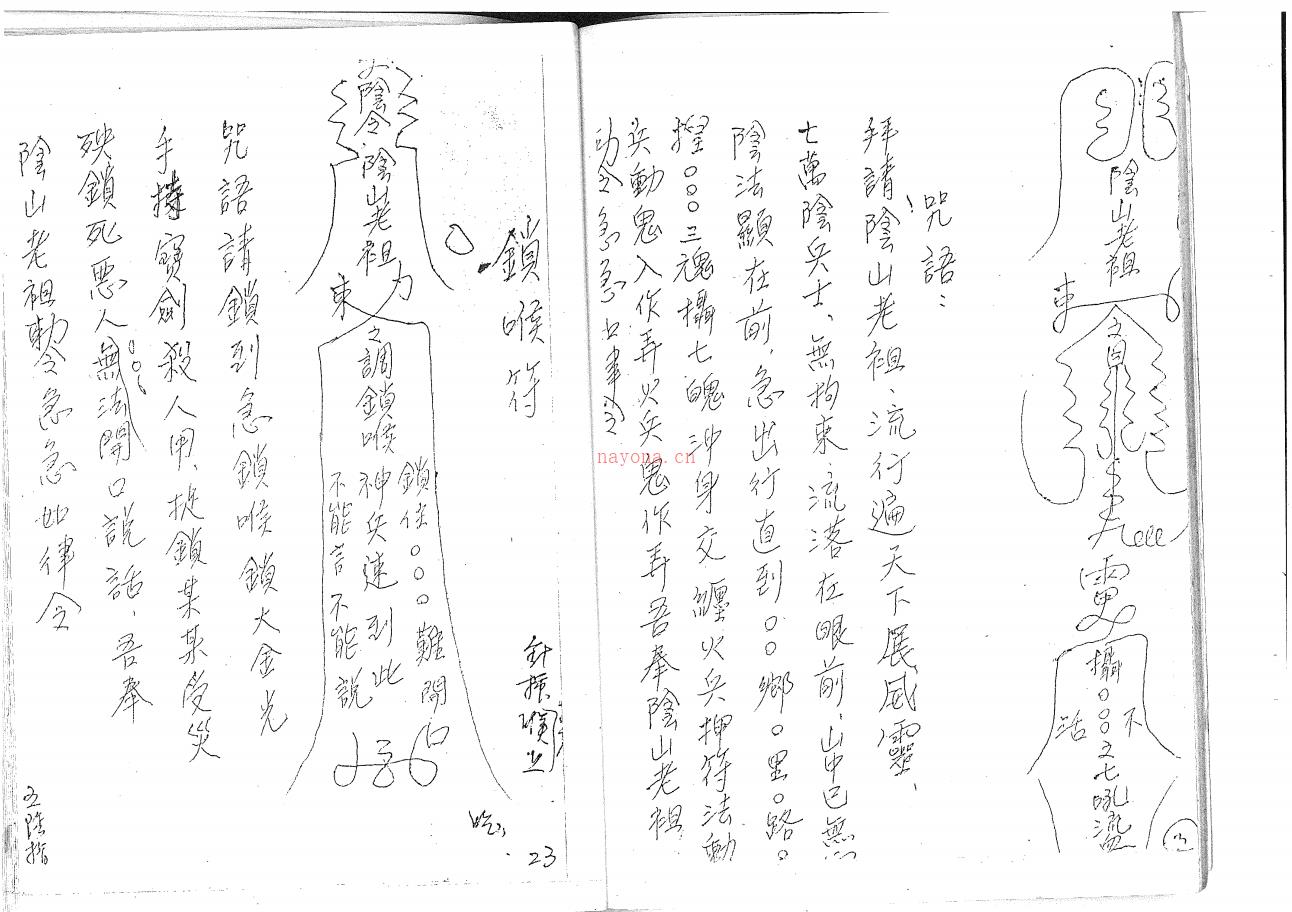 陰山老祖
東
雷
攝○○○
不
活
咒語：
拜請陰山老祖、流行遍天下展威靈、
七萬陰兵士、無拘束、流落在眼前、山中已無
陰法顯在前、急出行直到○○鄉○里○路○
○○○三魂攝七魄沖身交纏火兵押符法動
兵動鬼入作弄火兵鬼作弄吾奉陰山老祖
急急
nayona.cn
23
鎖喉符
陰令
陰山老祖
東
力
之調鎖喉神兵速到此
鎖住○○○難開口
不能言不能說
咒語請鎖到急鎖喉鎖大金光
手持寶劍殺人用、鎖某某受災
殃鎖死惡人○○○無法開口說話、吾奉
陰山老祖敕令急急如律令